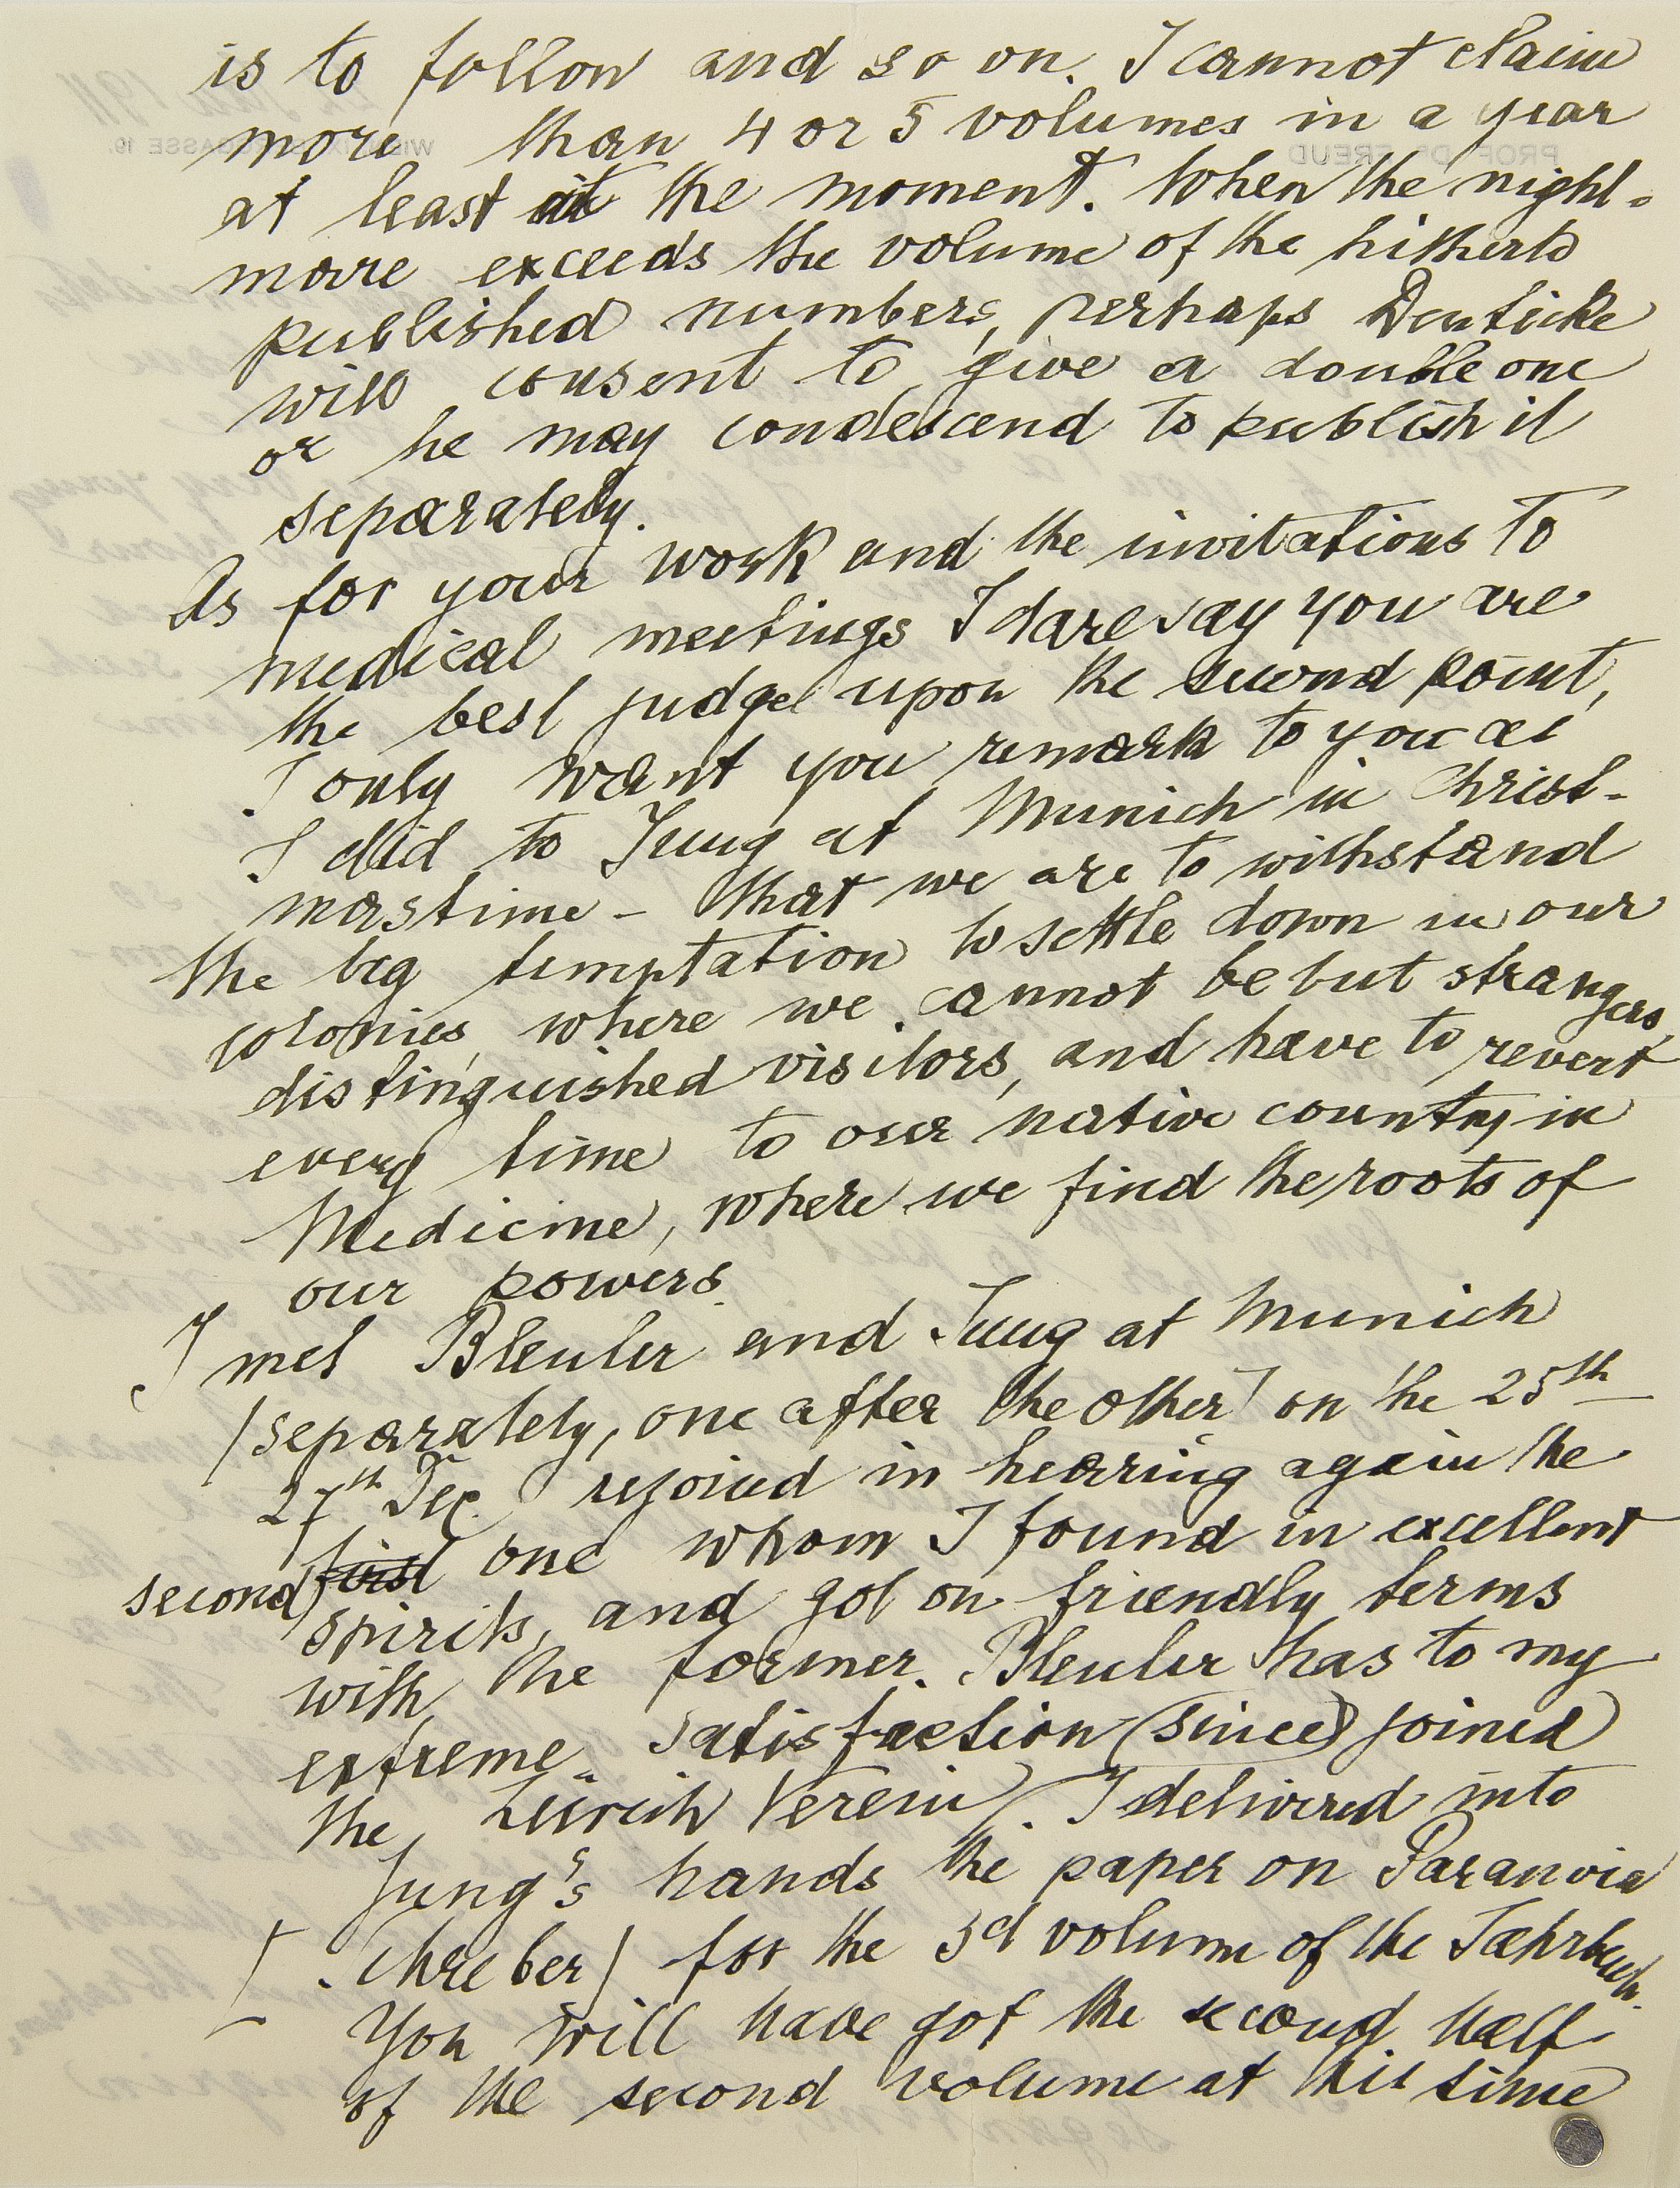 is to follow and so on. I cannot claim
more than 4 or 5 volumes in a year
at least at the moment. When the night-
mare exceeds the volume of the hitherto
published numbers, perhaps Deuticke
will consent to give a double one
or he may condescend to publish it
separately.
As for your work and the invitations to
medical meetings I dare say you are
the best judge upon the second point,
I only want you remark to you as
I did to Jung at Munich in Christ-
mastime – that we are to withstand
the big temptation to settle down in our
colonies, where we cannot be but strangers,
distinguished visitors, and have to revert
every time to our native country in
Medicine, where we find the roots of
our powers.
I met Bleuler and Jung at Munich
(separately, one after the other) on the 25th
27th Dec. rejoiced in hearing again the
second first one whom I found in excellent
spirits, and got on friendly terms
with the former. Bleuler has to my
extreme satisfaction (since) joined
the Zürich Verein. I delivered into
Jung's hands the paper on Paranoia
(Schreber) for the 3d volume of the Jahrbuch.
You will have got the second half
of the second volume at this time
PROF. DR. FREUD
WIEN, IX. BERGGASSE 19.